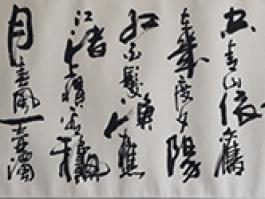 空青山依舊
在幾度夕陽
紅白髮漁樵
江渚上慣看秋
月春風一壺濁